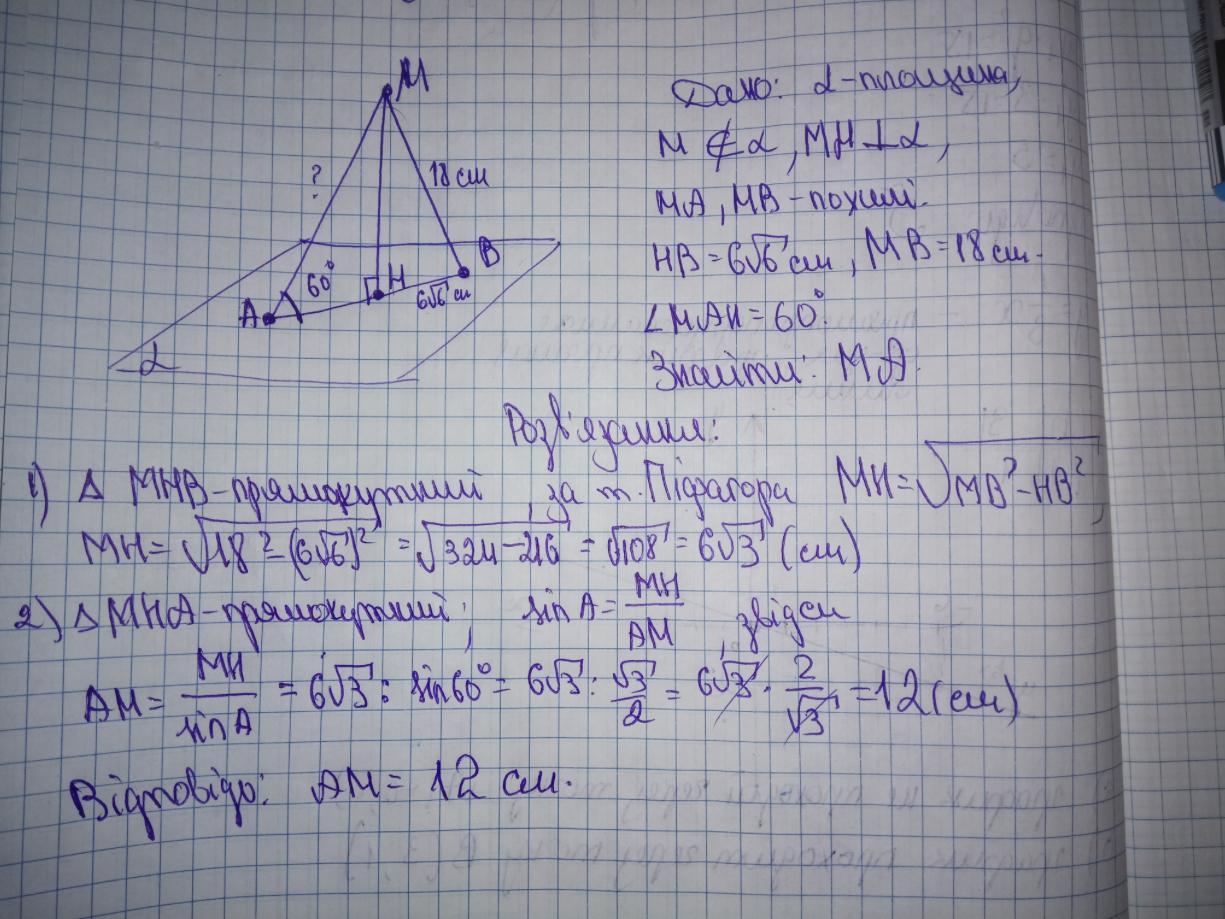 M
?
18 см
60°
H
B
6√6 см
A
α
Дано: α-площина,
M ∉ α, MH ⊥ α,
MA, MB - похилі.
HB = 6√6 см, MB = 18 см.
∠MAH = 60°
Знайти: MA.
Розв'язання:
1) Δ MHB - прямокутний, за т. Піфагора MH = √(MB² - HB²)
MH = √(18² - (6√6)²) = √(324 - 216) = √108 = 6√3 (см)
2) Δ MHA - прямокутний; sin A = MH/AM, звідси
AM = MH/sin A = 6√3 : sin 60° = 6√3 : √3/2 = 6√3 · 2/√3 = 12 (см)
Відповідь: AM = 12 см.